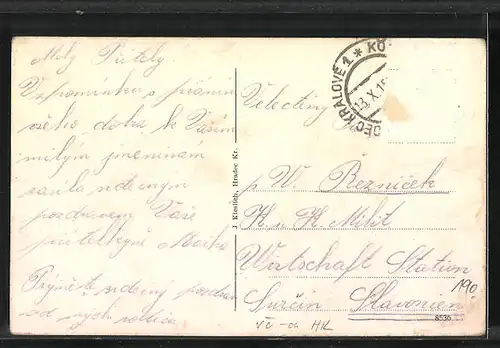 Milý Příteli!
Vzpomínku s přáním
všeho dobra k Vašim
milým jmeninám
srdečným
pozdravem Vaše
přítelkyně
Přijměte srdečný pozdrav
od mých rodičů
J. Klenhch, Hradec Kr.
DEC KRÁLOVÉ 1 * KÖ
Velectěný
p. W. Rezníček
K. u. K. Milit
Wirtschaft Station
Surčin Slavonien
190
8530